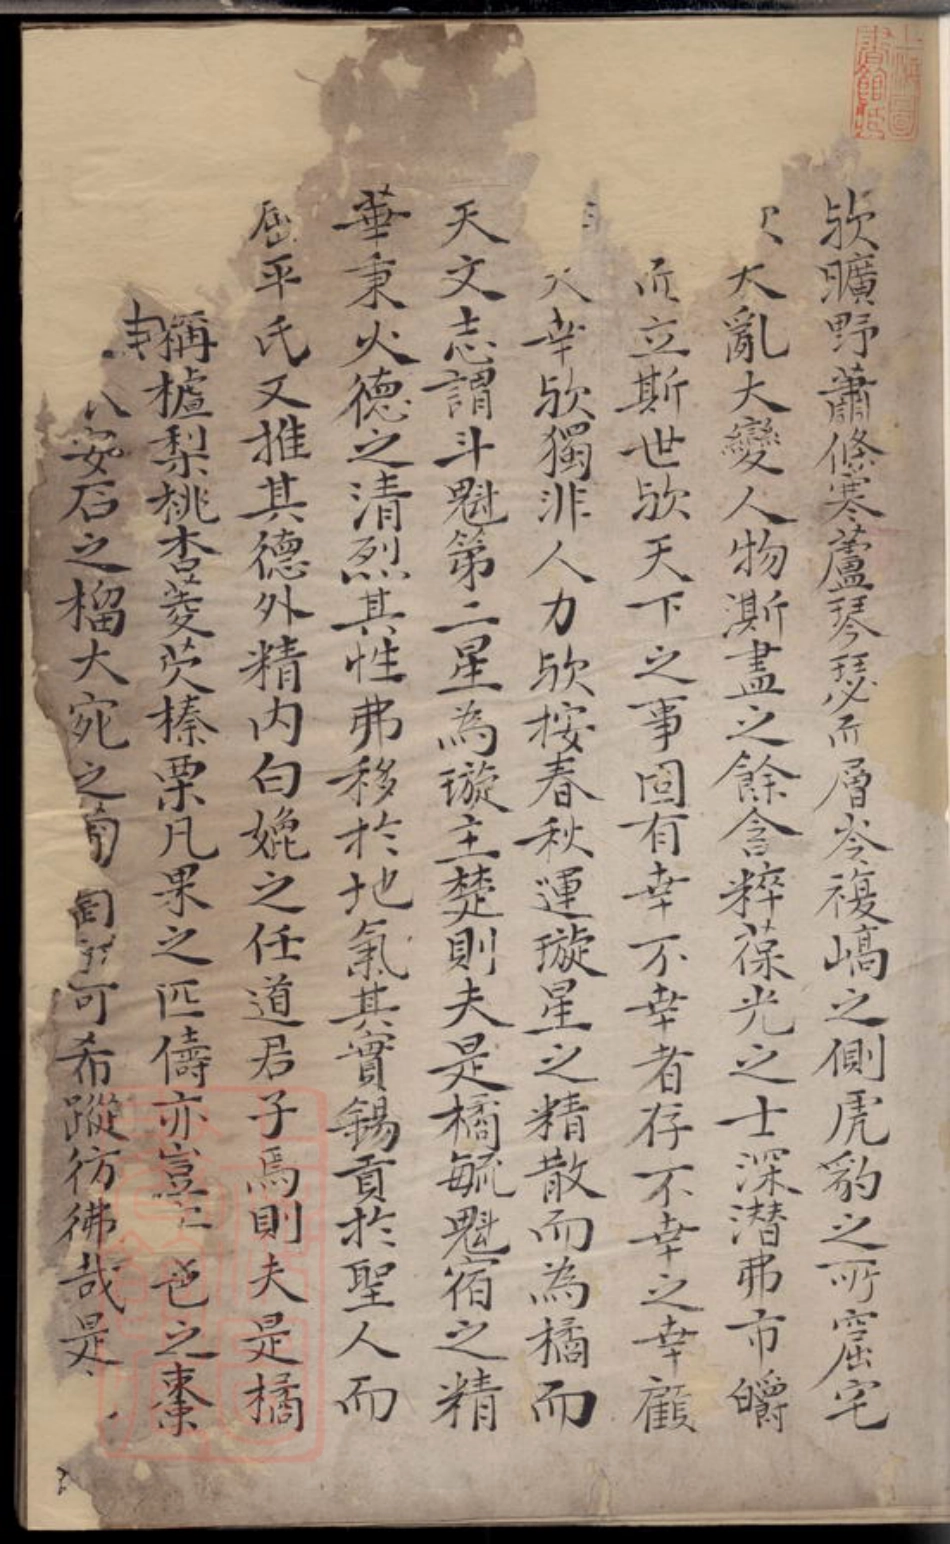 上海圖書館藏
歟曠野蕭條寒蘆琴瑟而層岑複嶠之側虎豹之所窟宅
大亂大變人物澌盡之餘含粹葆光之士深潜弗市皭
立斯世歟天下之事固有幸不幸者存不幸之幸顧
幸歟獨非人力歟按春秋運璇星之精散而為橘而
天文志謂斗魁第二星為璇主楚則夫是橘毓魁宿之精
華秉火德之清烈其性弗移於地氣其實錫貢於聖人而
屈平氏又推其德外精内白㛯之任道君子焉則夫是橘
稱樝梨桃杏菱芡榛栗凡果之匹儔亦豈邑之棗
安石之榴大宛之可希蹤彷彿哉是